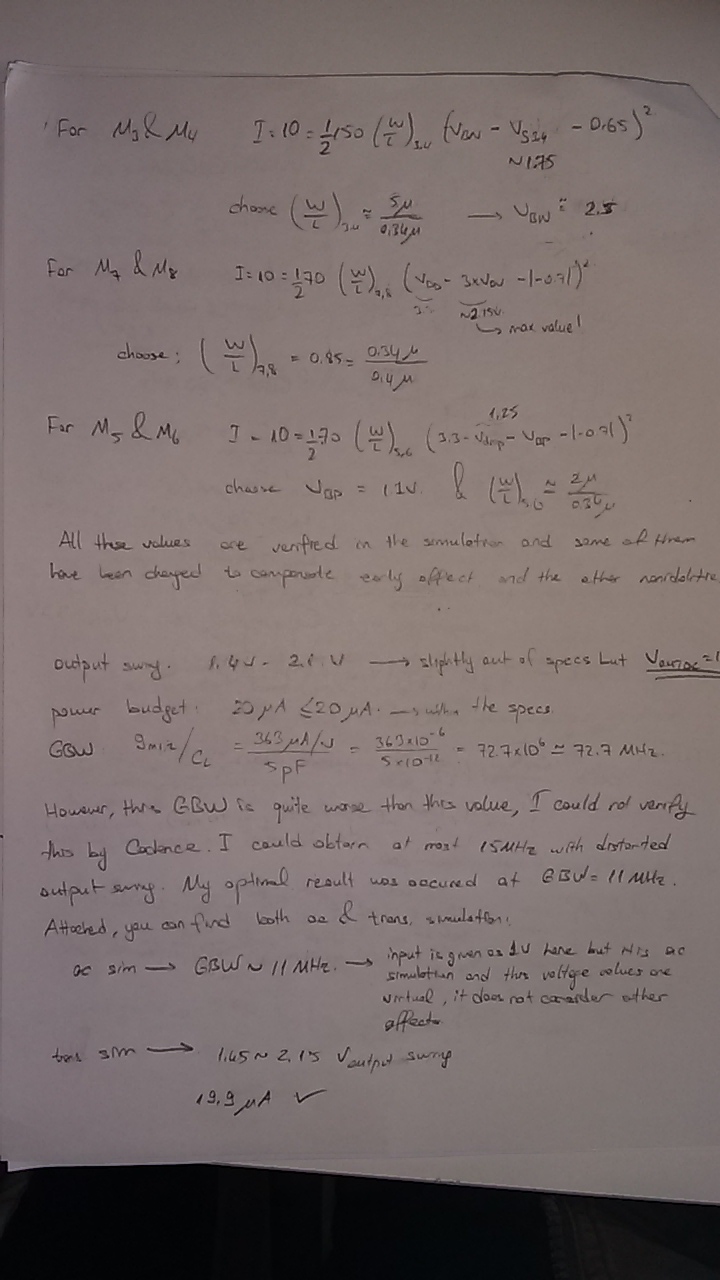 For M3 & M4 I = 10 = 1/2 150 (W/L)3,4 (VBN - VS3,4 - 0.65)²
~1.75
choose (W/L)3,4 ≈ 5μ/0.34μ → VBN ≈ 2.5
For M7 & M8 I = 10 = 1/2 70 (W/L)7,8 (VDD - 3xVOV - |-0.7|)²
~2.15V
→ max value!
choose: (W/L)7,8 = 0.85 = 0.34μ/0.4μ
1.25
For M5 & M6 I = 10 = 1/2 70 (W/L)5,6 (3.3 - Vdrop - VBP - |-0.7|)²
choose VBP = 1.1V & (W/L)5,6 ≈ 2μ/0.36μ
All these values are verified in the simulation and some of them
have been changed to compensate early effect and the other
output swing. 1.4V - 2.1V → slightly out of specs but
power budget: 20μA ≤ 20μA. → within the specs.
GBW gm1,2/CL = 363μA/V / 5pF = 363x10^-6 / 5x10^-12 = 72.7x10^6 ≈ 72.7 MHz.
However, this GBW is quite worse than this value, I could not verify
this by Cadence. I could obtain at most 15MHz with distorted
output swing. My optimal result was occured at GBW = 11 MHz.
Attached, you can find both ac & trans. simulation.
ac sim → GBW ~ 11 MHz. → input is given as 1V here but this ac
simulation and this voltage values are
virtual, it does not consider other
effects
trans sim → 1.45 ~ 2.15 Voutput swing
19.9 μA ✓